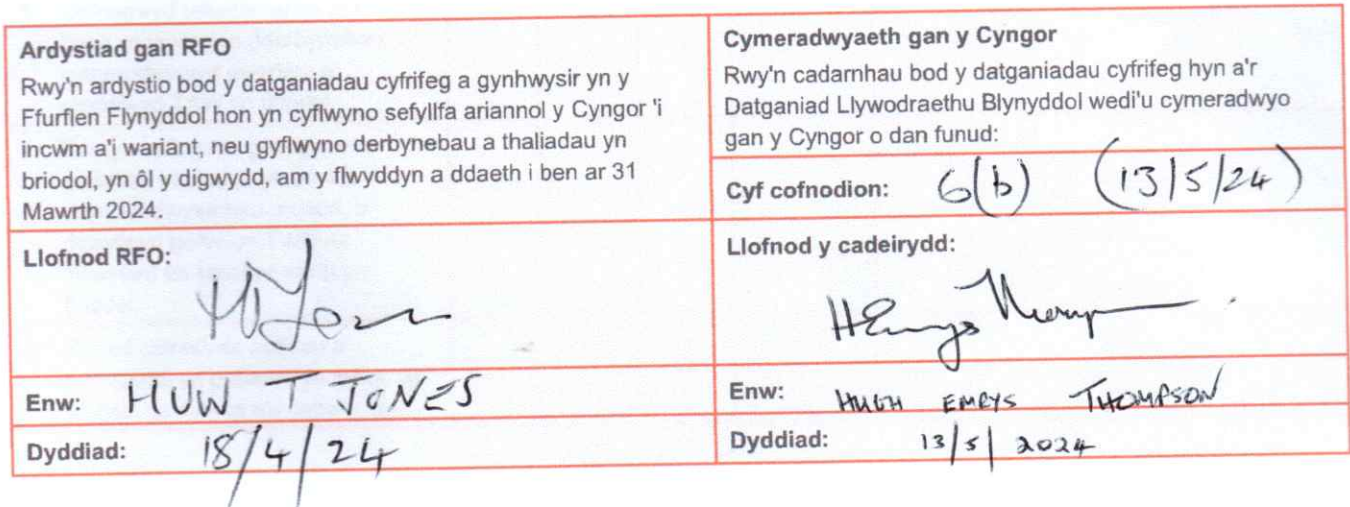 Ardystiad gan RFO
Rwy'n ardystio bod y datganiadau cyfrifeg a gynhwysir yn y
Ffurflen Flynyddol hon yn cyflwyno sefyllfa ariannol y Cyngor 'i
incwm a'i wariant, neu gyflwyno derbynebau a thaliadau yn
briodol, yn ôl y digwydd, am y flwyddyn a ddaeth i ben ar 31
Mawrth 2024.
Llofnod RFO:
Enw: HUW T JONES
Dyddiad: 18/4/24
Cymeradwyaeth gan y Cyngor
Rwy'n cadarnhau bod y datganiadau cyfrifeg hyn a'r
Datganiad Llywodraethu Blynyddol wedi'u cymeradwyo
gan y Cyngor o dan funud:
Cyf cofnodion: 6(b) (13/5/24)
Llofnod y cadeirydd:
Enw: HUGH EMRYS THOMPSON
Dyddiad: 13/5/2024